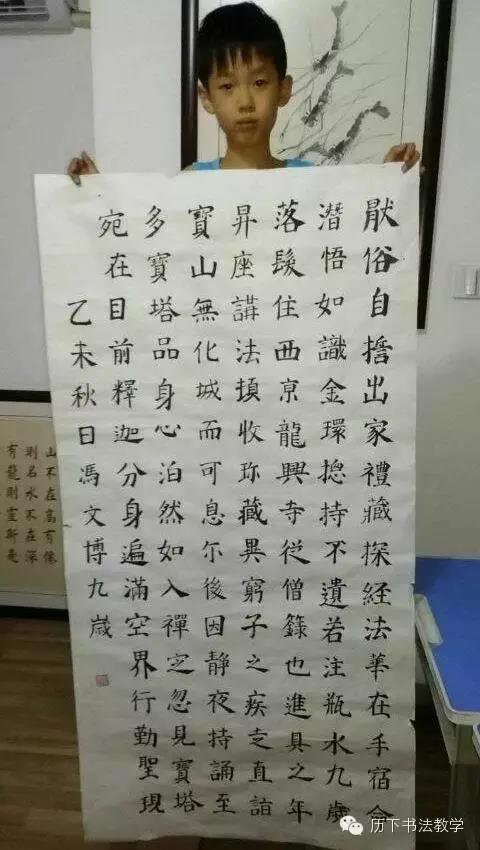 猒俗自誓出家禮藏探経法華在手宿命
潛悟如識金環揔持不遺若注瓶水九歲
落髮住西京龍興寺從僧錄也進具之年
昇座講法頓收珎藏異窮子之疾走直詣
寶山無化城而可息尒後因静夜持誦至
多寶塔品身心泊然如入禪定忽見寶塔
宛在目前釋迦分身遍滿空界行勤聖現
乙未秋日馮文博九歲
山不在高有僊
則名水不在深
有龍則靈斯是
历下书法教学